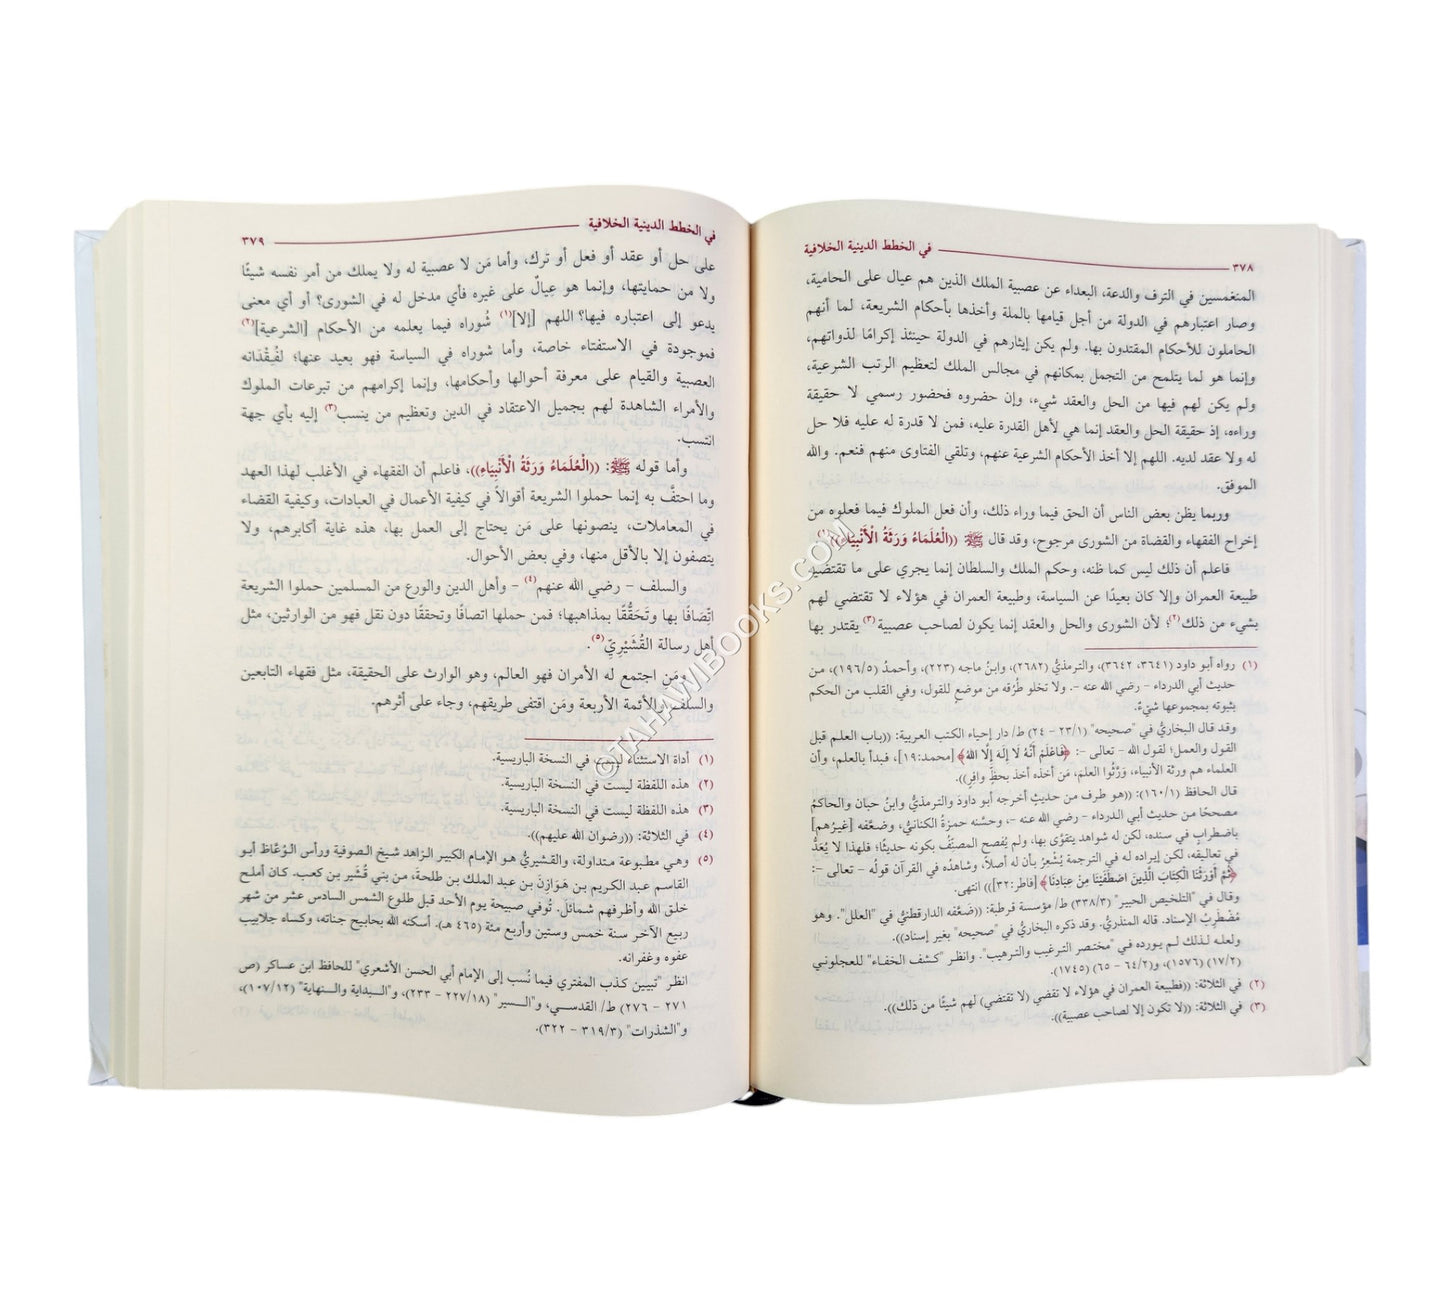 ٣٧٨ في الخطط الدينية الخلافية
المنغمسين في الترف والدعة، البعداء عن عصبية الملك الذين هم عيال على الحامية،
وصار اعتبارهم في الدولة من أجل قيامها بالملة وأخذها بأحكام الشريعة، لما أنهم
الحاملون للأحكام المقتدون بها. ولم يكن إيثارهم في الدولة حينئذ إكرامًا لذواتهم،
وإنما هو لما يتلمح من التجمل بمكانهم في مجالس الملك لتعظيم الرتب الشرعية،
ولم يكن لهم فيها من الحل والعقد شيء، وإن حضروه فحضور رسمي لا حقيقة
وراءه، إذ حقيقة الحل والعقد إنما هي لأهل القدرة عليه، فمن لا قدرة له عليه فلا حل
له ولا عقد لديه. اللهم إلا أخذ الأحكام الشرعية عنهم، وتلقي الفتاوى منهم فنعم. والله
الموفق.
وربما يظن بعض الناس أن الحق فيما وراء ذلك، وأن فعل الملوك فيما فعلوه من
إخراج الفقهاء والقضاة من الشورى مرجوح، وقد قال ﷺ ((الْعُلَمَاءُ وَرَثَةُ الْأَنْبِيَاءِ))(١).
فاعلم أن ذلك ليس كما ظنه، وحكم الملك والسلطان إنما يجري على ما تقتضيه
طبيعة العمران وإلا كان بعيدًا عن السياسة، وطبيعة العمران في هؤلاء لا تقتضي لهم
بشيء من ذلك(٢)؛ لأن الشورى والحل والعقد إنما يكون لصاحب عصبية(٣) يقتدر بها
(١) رواه أبو داود (٣٦٤١، ٣٦٤٢)، والترمذيُّ (٢٦٨٢)، وابنُ ماجه (٢٢٣)، وأحمدُ (١٩٦/٥)، من
حديث أبي الدرداء - رضي الله عنه -. ولا تخلو طُرُقه من موضعٍ للقول، وفي القلب من الحكم
بثبوته بمجموعها شيءٌ.
وقد قال البخاريُّ في "صحيحه" (٢٣/١ - ٢٤) ط/ دار إحياء الكتب العربية: ((باب العلم قبل
القول والعمل؛ لقول الله - تعالى -: ﴿فَاعْلَمْ أَنَّهُ لَا إِلَهَ إِلَّا اللهُ﴾ [محمد:١٩]، فبدأ بالعلم، وأن
العلماء هم ورثة الأنبياء، وَرَّثُوا العلمَ، مَن أخذه أخذ بحظٍّ وافِرٍ)).
قال الحافظ (١٦٠/١): ((هو طرف من حديثٍ أخرجه أبو داودَ والترمذيُّ وابنُ حبان والحاكمُ
مصححًا من حديث أبي الدرداء - رضي الله عنه -، وحسَّنه حمزةُ الكنانيُّ، وضعَّفه [غيرُهم]
باضطرابٍ في سنده، لكن له شواهد يتقوَّى بها، ولم يُفصح المصنِّف بكونه حديثًا؛ فلهذا لا يُعَدُّ
في تعاليقه، لكن إيراده له في الترجمة يُشْعِرُ بأن له أصلاً، وشاهدُه في القرآن قولُه - تعالى -:
﴿ثُمَّ أَوْرَثْنَا الْكِتَابَ الَّذِينَ اصْطَفَيْنَا مِنْ عِبَادِنَا﴾ [فاطر:٣٢])) انتهى.
وقال في "التلخيص الحبير" (٣٣٨/٣) ط/ مؤسسة قرطبة: ((ضَعَّفه الدارقطنيُّ في "العلل". وهو
مُضطَرِبُ الإسناد. قاله المنذريُّ. وقد ذكره البخاريُّ في "صحيحه" بغير إسناد)).
ولعله لذلك لم يورده في "مختصر الترغيب والترهيب". وانظر "كشف الخفاء" للعجلوني
(١٧/٢) (١٥٧٦)، و(٦٤/٢ - ٦٥) (١٧٤٥).
(٢) في الثلاثة: ((فطبيعة العمران في هؤلاء لا تقضي (لا تقتضي) لهم شيئًا من ذلك)).
(٣) في الثلاثة: ((لا تكون إلا لصاحب عصبية)).
في الخطط الدينية الخلافية ٣٧٩
على حل أو عقد أو فعل أو ترك، وأما مَن لا عصبية له ولا يملك من أمر نفسه شيئًا
ولا من حمايتها، وإنما هو عِيالٌ على غيره فأي مدخل له في الشورى؟ أو أي معنى
يدعو إلى اعتباره فيها؟ اللهم [إلا](١) شُوراه فيما يعلمه من الأحكام [الشرعية](٢)
فموجودة في الاستفتاء خاصة، وأما شوراه في السياسة فهو بعيد عنها؛ لفُقْدَانه
العصبية والقيام على معرفة أحوالها وأحكامها، وإنما إكرامهم من تبرعات الملوك
والأمراء الشاهدة لهم بجميل الاعتقاد في الدين وتعظيم من ينسب(٣) إليه بأي جهة
انتسب.
وأما قوله ﷺ: ((الْعُلَمَاءُ وَرَثَةُ الْأَنْبِيَاءِ))، فاعلم أن الفقهاء في الأغلب لهذا العهد
وما احتفَّ به إنما حملوا الشريعة أقوالاً في كيفية الأعمال في العبادات، وكيفية القضاء
في المعاملات، ينصونها على مَن يحتاج إلى العمل بها، هذه غاية أكابرهم، ولا
يتصفون إلا بالأقل منها، وفي بعض الأحوال.
والسلف - رضي الله عنهم(٤) - وأهل الدين والورع من المسلمين حملوا الشريعة
اتِّصَافًا بها وتَحَقُّقًا بمذاهبها؛ فمن حملها اتصافًا وتحققًا دون نقل فهو من الوارثين، مثل
أهل رسالة القُشَيْرِيِّ(٥).
ومَن اجتمع له الأمران فهو العالم، وهو الوارث على الحقيقة، مثل فقهاء التابعين
والسلف والأئمة الأربعة ومَن اقتفى طريقهم، وجاء على أثرهم.
(١) أداة الاستثناء ليست في النسخة الباريسية.
(٢) هذه اللفظة ليست في النسخة الباريسية.
(٣) هذه اللفظة ليست في النسخة الباريسية.
(٤) في الثلاثة: ((رضوان الله عليهم)).
(٥) وهي مطبوعة متداولة، والقشيريُّ هو الإمام الكبير الزاهد شيخ الصوفية ورأس الوُعّاظ أبو
القاسم عبد الكريم بن هَوَازِنَ بن عبد الملك بن طلحة، من بني قُشَير بن كعب. كان أملح
خلق الله وأظرفهم شمائلَ. تُوفي صبيحة يوم الأحد قبل طلوع الشمس السادس عشر من شهر
ربيع الآخر سنة خمس وستين وأربع مئة (٤٦٥ هـ). أسكنه الله بحابيح جناته، وكساه جلابيب
عفوه وغفرانه.
انظر "تبيين كذب المفتري فيما نُسب إلى الإمام أبي الحسن الأشعري" للحافظ ابن عساكر (ص
٢٧١ - ٢٧٦) ط/ القدسي، و"السير" (٢٢٧/١٨ - ٢٣٣)، و"البداية والنهاية" (١٠٧/١٢)،
و"الشذرات" (٣١٩/٣ - ٣٢٢).
© TAHAWIBOOKS.COM